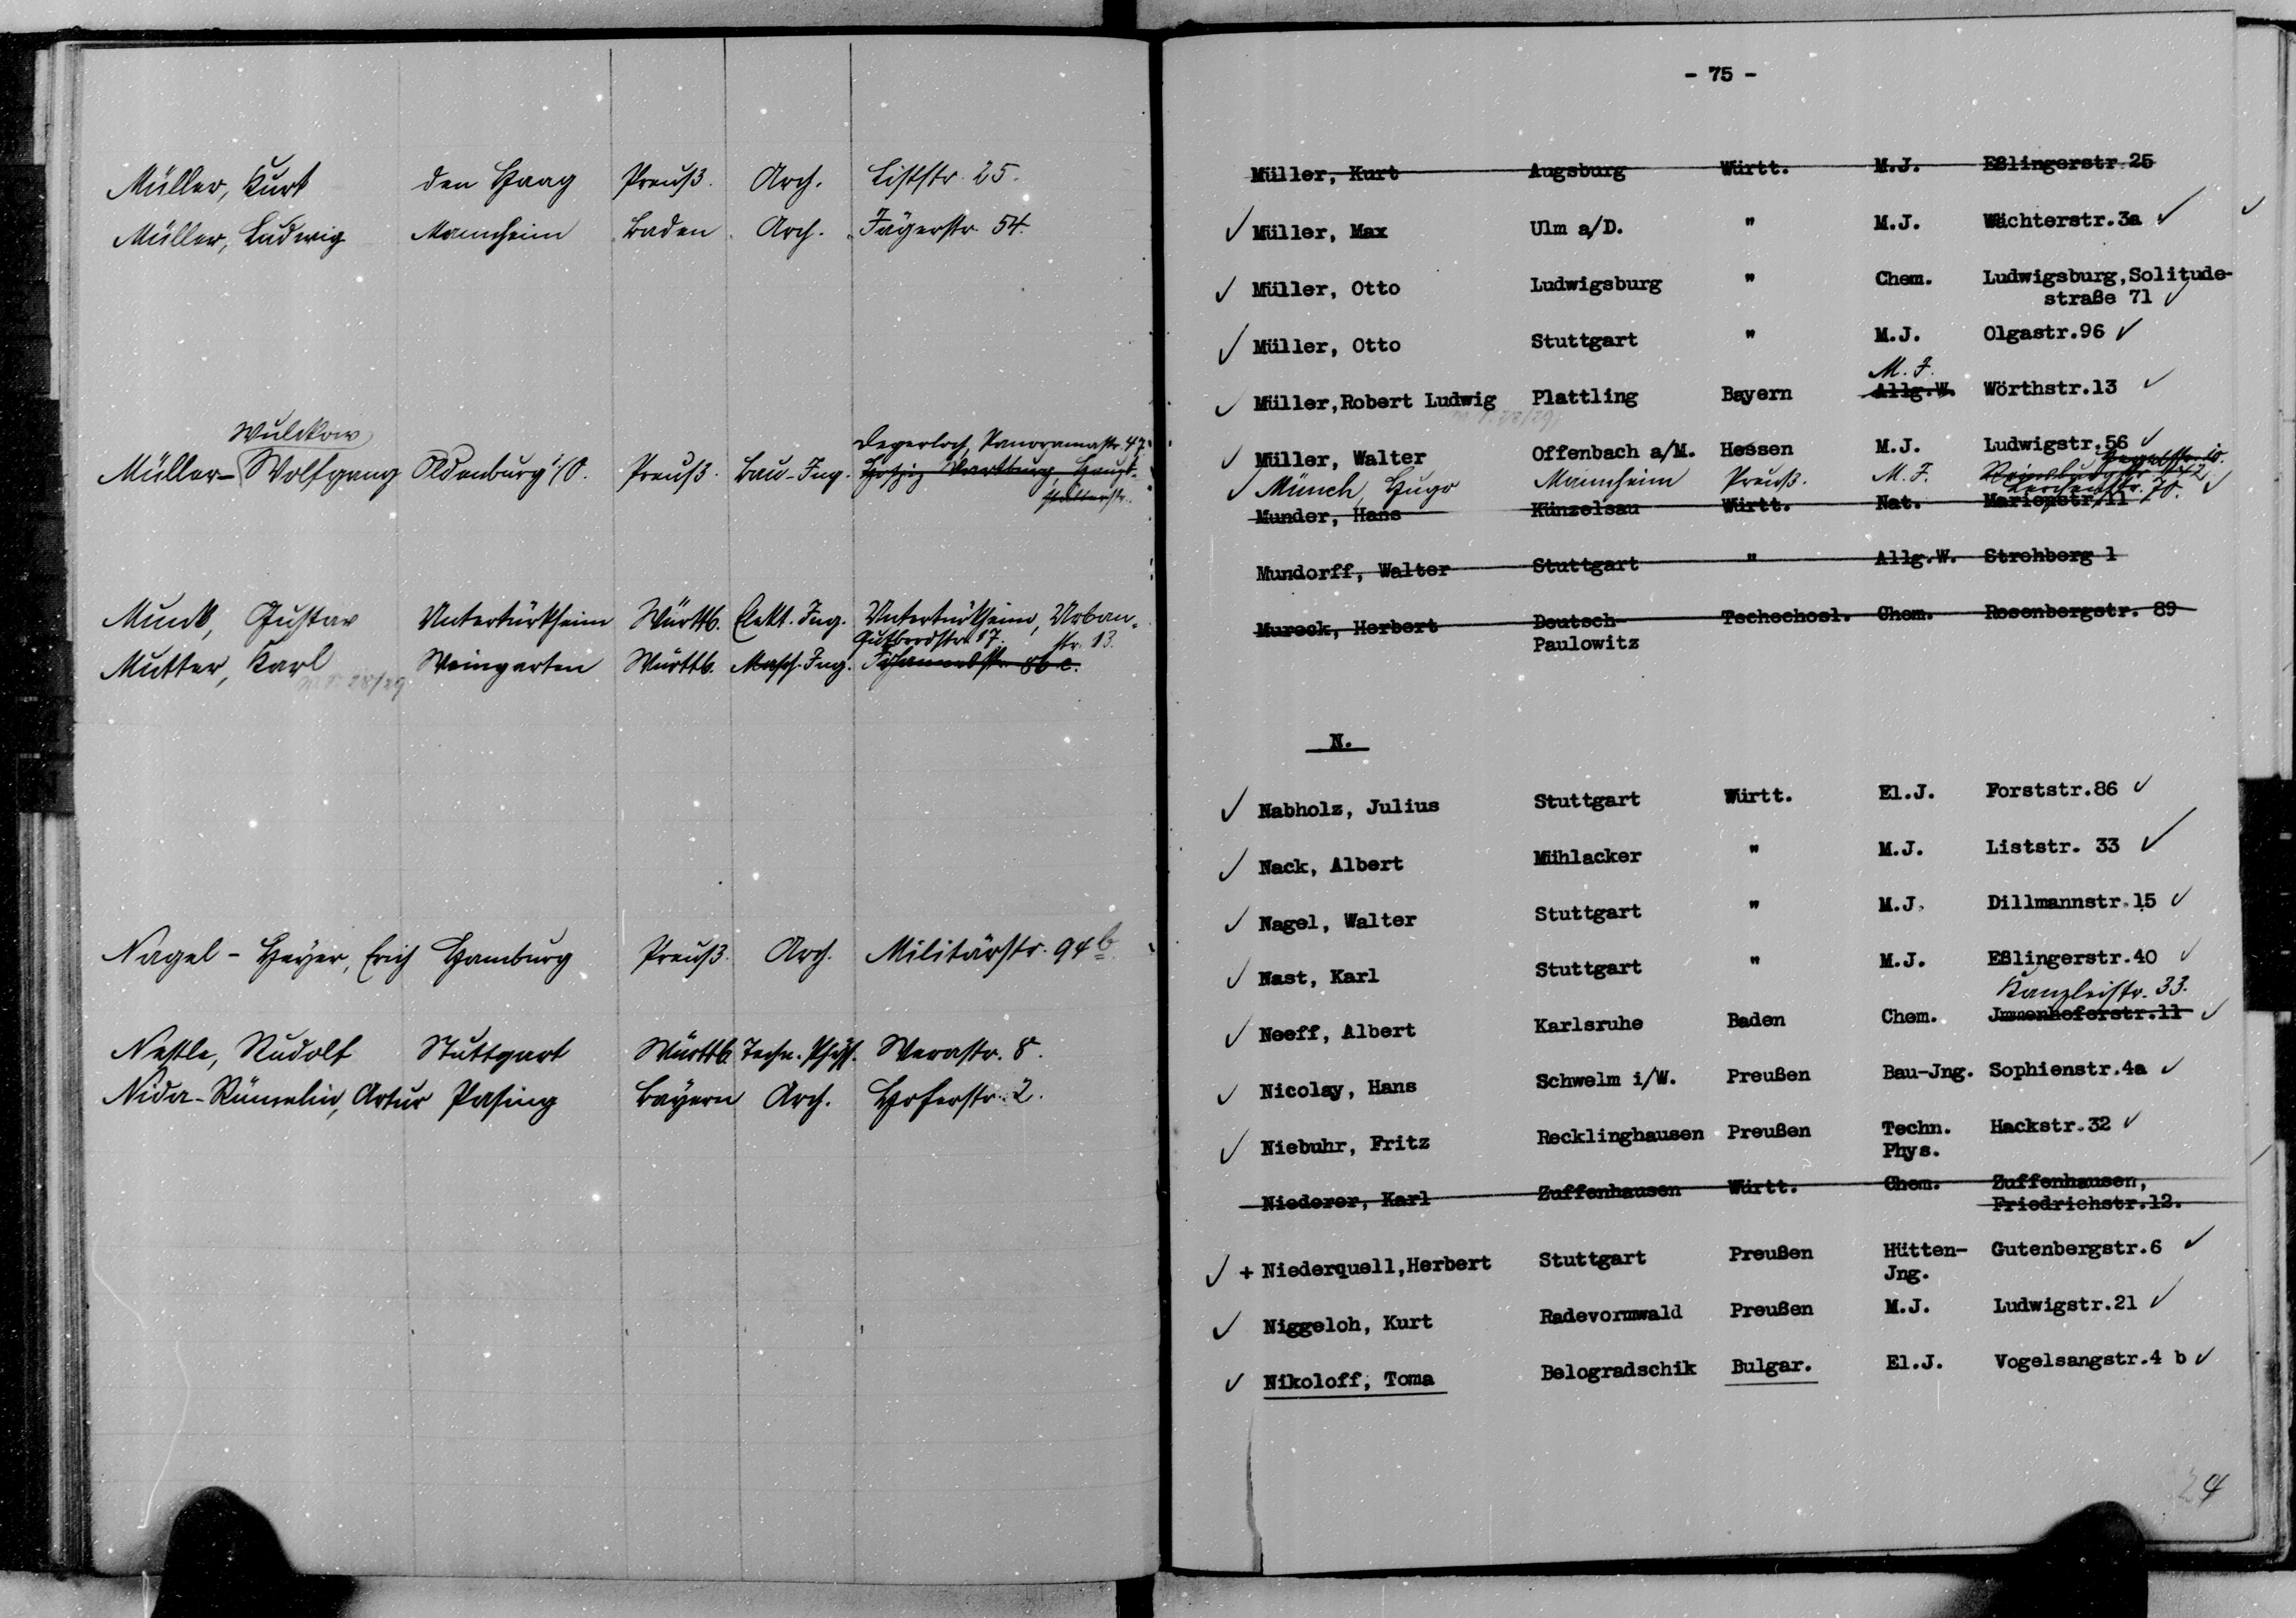 Müller, Kurt den Haag Preuß. Arch. Liststr. 25.
Müller, Ludwig Mannheim Baden Arch. Jägerstr. 54.
Wulckow
Degerloch, Panoramastr. 47
Müller- Wolfgang Oldenburg i/O. Preuß. Bau-Ing.
Munk, Gustav Untertürkheim Württb. Elekt. Ing. Untertürkheim, Urban-
str. 13.
Gutbrodstr. 17.
Mutter, Karl Weingarten Württb. Masch. Ing. Johannesstr. 86 c.
W.S. 28/29
Nagel-Heyer, Erich Hamburg Preuß. Arch. Militärstr. 94 b
Nestle, Rudolf Stuttgart Württb. Techn. Phys. Werastr. 8.
Nida-Rümelin, Artur Pasing Bayern Arch. Hoferstr. 2.
- 75 -
Müller, Kurt Augsburg Württ. M.J. Eßlingerstr. 25
✓ Müller, Max Ulm a/D. " M.J. Wächterstr.3a ✓ ✓
✓ Müller, Otto Ludwigsburg " Chem. Ludwigsburg,Solitude-
straße 71 ✓
✓ Müller, Otto Stuttgart " M.J. Olgastr.96 ✓
M.J.
✓ Müller,Robert Ludwig Plattling Bayern Allg.W. Wörthstr.13 ✓
✓ Müller, Walter Offenbach a/M. Hessen M.J. Ludwigstr.56 ✓
✓ Münch, Hugo Mannheim Preuß. M.J.
Munder, Hans Künzelsau Württ. Nat. Marienstr.11
Mundorff, Walter Stuttgart " Allg.W. Strohberg 1
Mureck, Herbert Deutsch- Tschechosl. Chem. Rosenbergstr. 89
Paulowitz
N.
✓ Nabholz, Julius Stuttgart Württ. El.J. Forststr.86 ✓
✓ Nack, Albert Mühlacker " M.J. Liststr. 33 ✓
✓ Nagel, Walter Stuttgart " M.J. Dillmannstr.15 ✓
✓ Nast, Karl Stuttgart " M.J. Eßlingerstr.40 ✓
Kanzleistr. 33.
✓ Neeff, Albert Karlsruhe Baden Chem. Jmmenhoferstr.11 ✓
✓ Nicolay, Hans Schwelm i/W. Preußen Bau-Jng. Sophienstr.4a ✓
✓ Niebuhr, Fritz Recklinghausen Preußen Techn. Hackstr.32 ✓
Phys.
Niederer, Karl Zuffenhausen Württ. Chem. Zuffenhausen,
Friedrichstr.12.
✓ + Niederquell,Herbert Stuttgart Preußen Hütten- Gutenbergstr.6 ✓
Jng.
✓ Niggeloh, Kurt Radevormwald Preußen M.J. Ludwigstr.21 ✓
✓ Nikoloff, Toma Belogradschik Bulgar. El.J. Vogelsangstr.4 b ✓
24